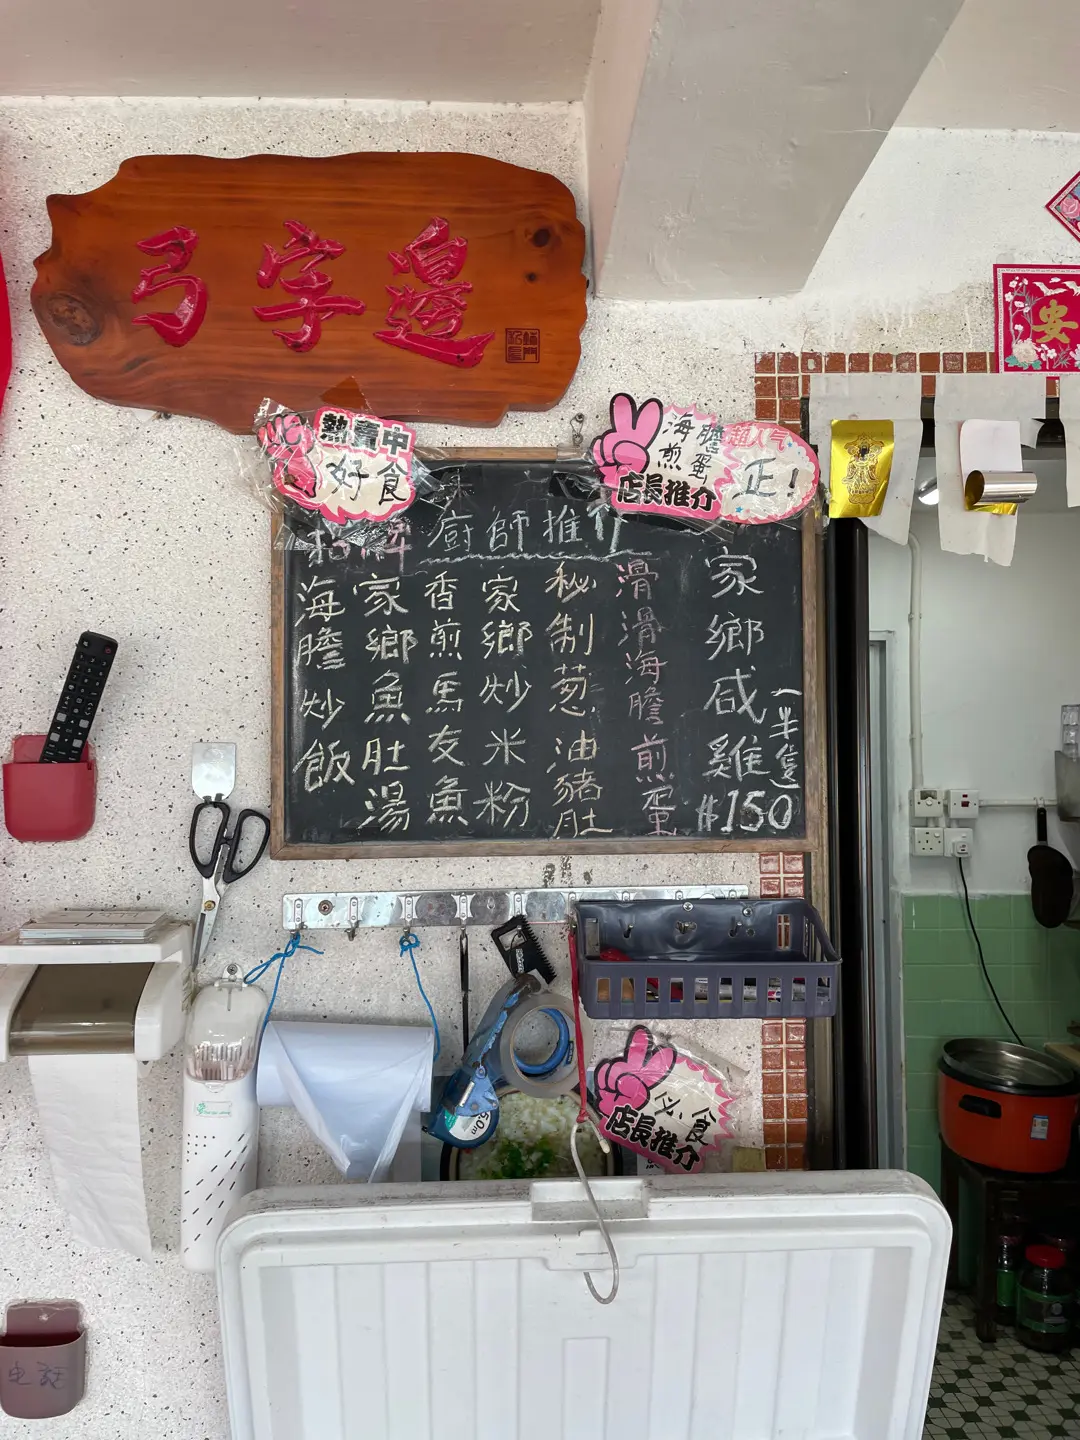 弓字邊
熱賣中
好食
海膽
煎蛋
店長推介
超人气
正!
招牌
廚師推介
海膽炒飯
家鄉魚肚湯
香煎馬友魚
家鄉炒米粉
秘制葱油豬肚
滑滑海膽煎蛋
家鄉咸雞
一半隻
$150
安
必食
店長推介
5.0m
电話